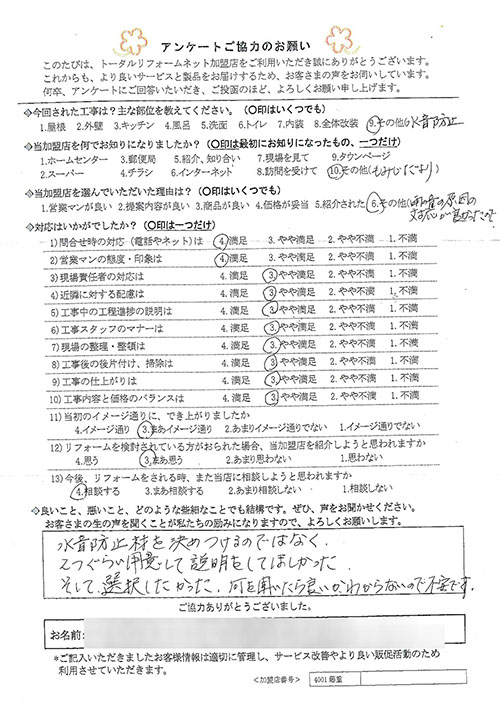 アンケートご協力のお願い
このたびは、トータルリフォームネット加盟店をご利用いただき誠にありがとうございます。
これからも、より良いサービスと製品をお届けするため、お客さまの声をお伺いしています。
何卒、アンケートにご回答いただき、ご投函のほど、よろしくお願い申し上げます。
◇今回された工事は？主な部位を教えてください。（〇印はいくつでも）
1.屋根 2.外壁 3.キッチン 4.風呂 5.洗面 6.トイレ 7.内装 8.全体改装 9.その他(水音防止
◇当加盟店を何でお知りになりましたか？（〇印は最初にお知りになったもの、一つだけ）
1.ホームセンター 3.郵便局 5.紹介、知り合い 7.現場を見て 9.タウンページ
2.スーパー 4.チラシ 6.インターネット 8.訪問を受けて 10.その他(
◇当加盟店を選んでいただいた理由は？（〇印はいくつでも）
1.営業マンが良い 2.提案内容が良い 3.商品が良い 4.価格が妥当 5.紹介された 6.その他(
◇対応はいかがでしたか？（〇印は一つだけ）
1)問合せ時の対応（電話やネット）は 4.満足 3.やや満足 2.やや不満 1.不満
2)営業マンの態度・印象は 4.満足 3.やや満足 2.やや不満 1.不満
3)現場責任者の対応は 4.満足 3.やや満足 2.やや不満 1.不満
4)近隣に対する配慮は 4.満足 3.やや満足 2.やや不満 1.不満
5)工事中の工程進捗の説明は 4.満足 3.やや満足 2.やや不満 1.不満
6)工事スタッフのマナーは 4.満足 3.やや満足 2.やや不満 1.不満
7)現場の整理・整頓は 4.満足 3.やや満足 2.やや不満 1.不満
8)工事後の後片付け、掃除は 4.満足 3.やや満足 2.やや不満 1.不満
9)工事の仕上がりは 4.満足 3.やや満足 2.やや不満 1.不満
10)工事内容と価格のバランスは 4.満足 3.やや満足 2.やや不満 1.不満
11)当初のイメージ通りに、でき上がりましたか
4.イメージ通り 3.まあイメージ通り 2.あまりイメージ通りでない 1.イメージ通りでない
12)リフォームを検討されている方がおられた場合、当加盟店を紹介しようと思われますか
4.思う 3.まあ思う 2.あまり思わない 1.思わない
13)今後、リフォームをされる時、また当店に相談しようと思われますか
4.相談する 3.まあ相談する 2.あまり相談しない 1.相談しない
◎良いこと、悪いこと、どのような些細なことでも結構です。ぜひ、声をお聞かせください。
お客さまの生の声を聞くことが私たちの励みになりますので、よろしくお願いします。
水音防止材を決めつけるのではなく、
2つぐらい用意して説明をしてほしかった
そして、選択したかった。何を用いたら良いかわからないので不安です。
ご協力ありがとうございました。
お名前:
*ご記入いただきましたお客様情報は適切に管理し、サービス改善やより良い販促活動のため
利用させていただきます。
<加盟店番号> 4001